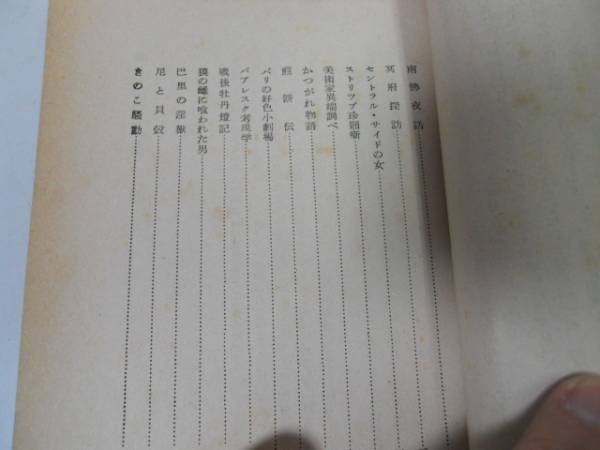 南仏夜話
冥府探訪
セントラル・サイドの女
ストリツプ珍題噺
美術家異端調べ
かつがれ物語
パリの好色小劇場
バアレスク考現学
戦後牡丹燈記
獏の雌に喰われた男
巴里の淫獣
尼と貝殻
きのこ騒動